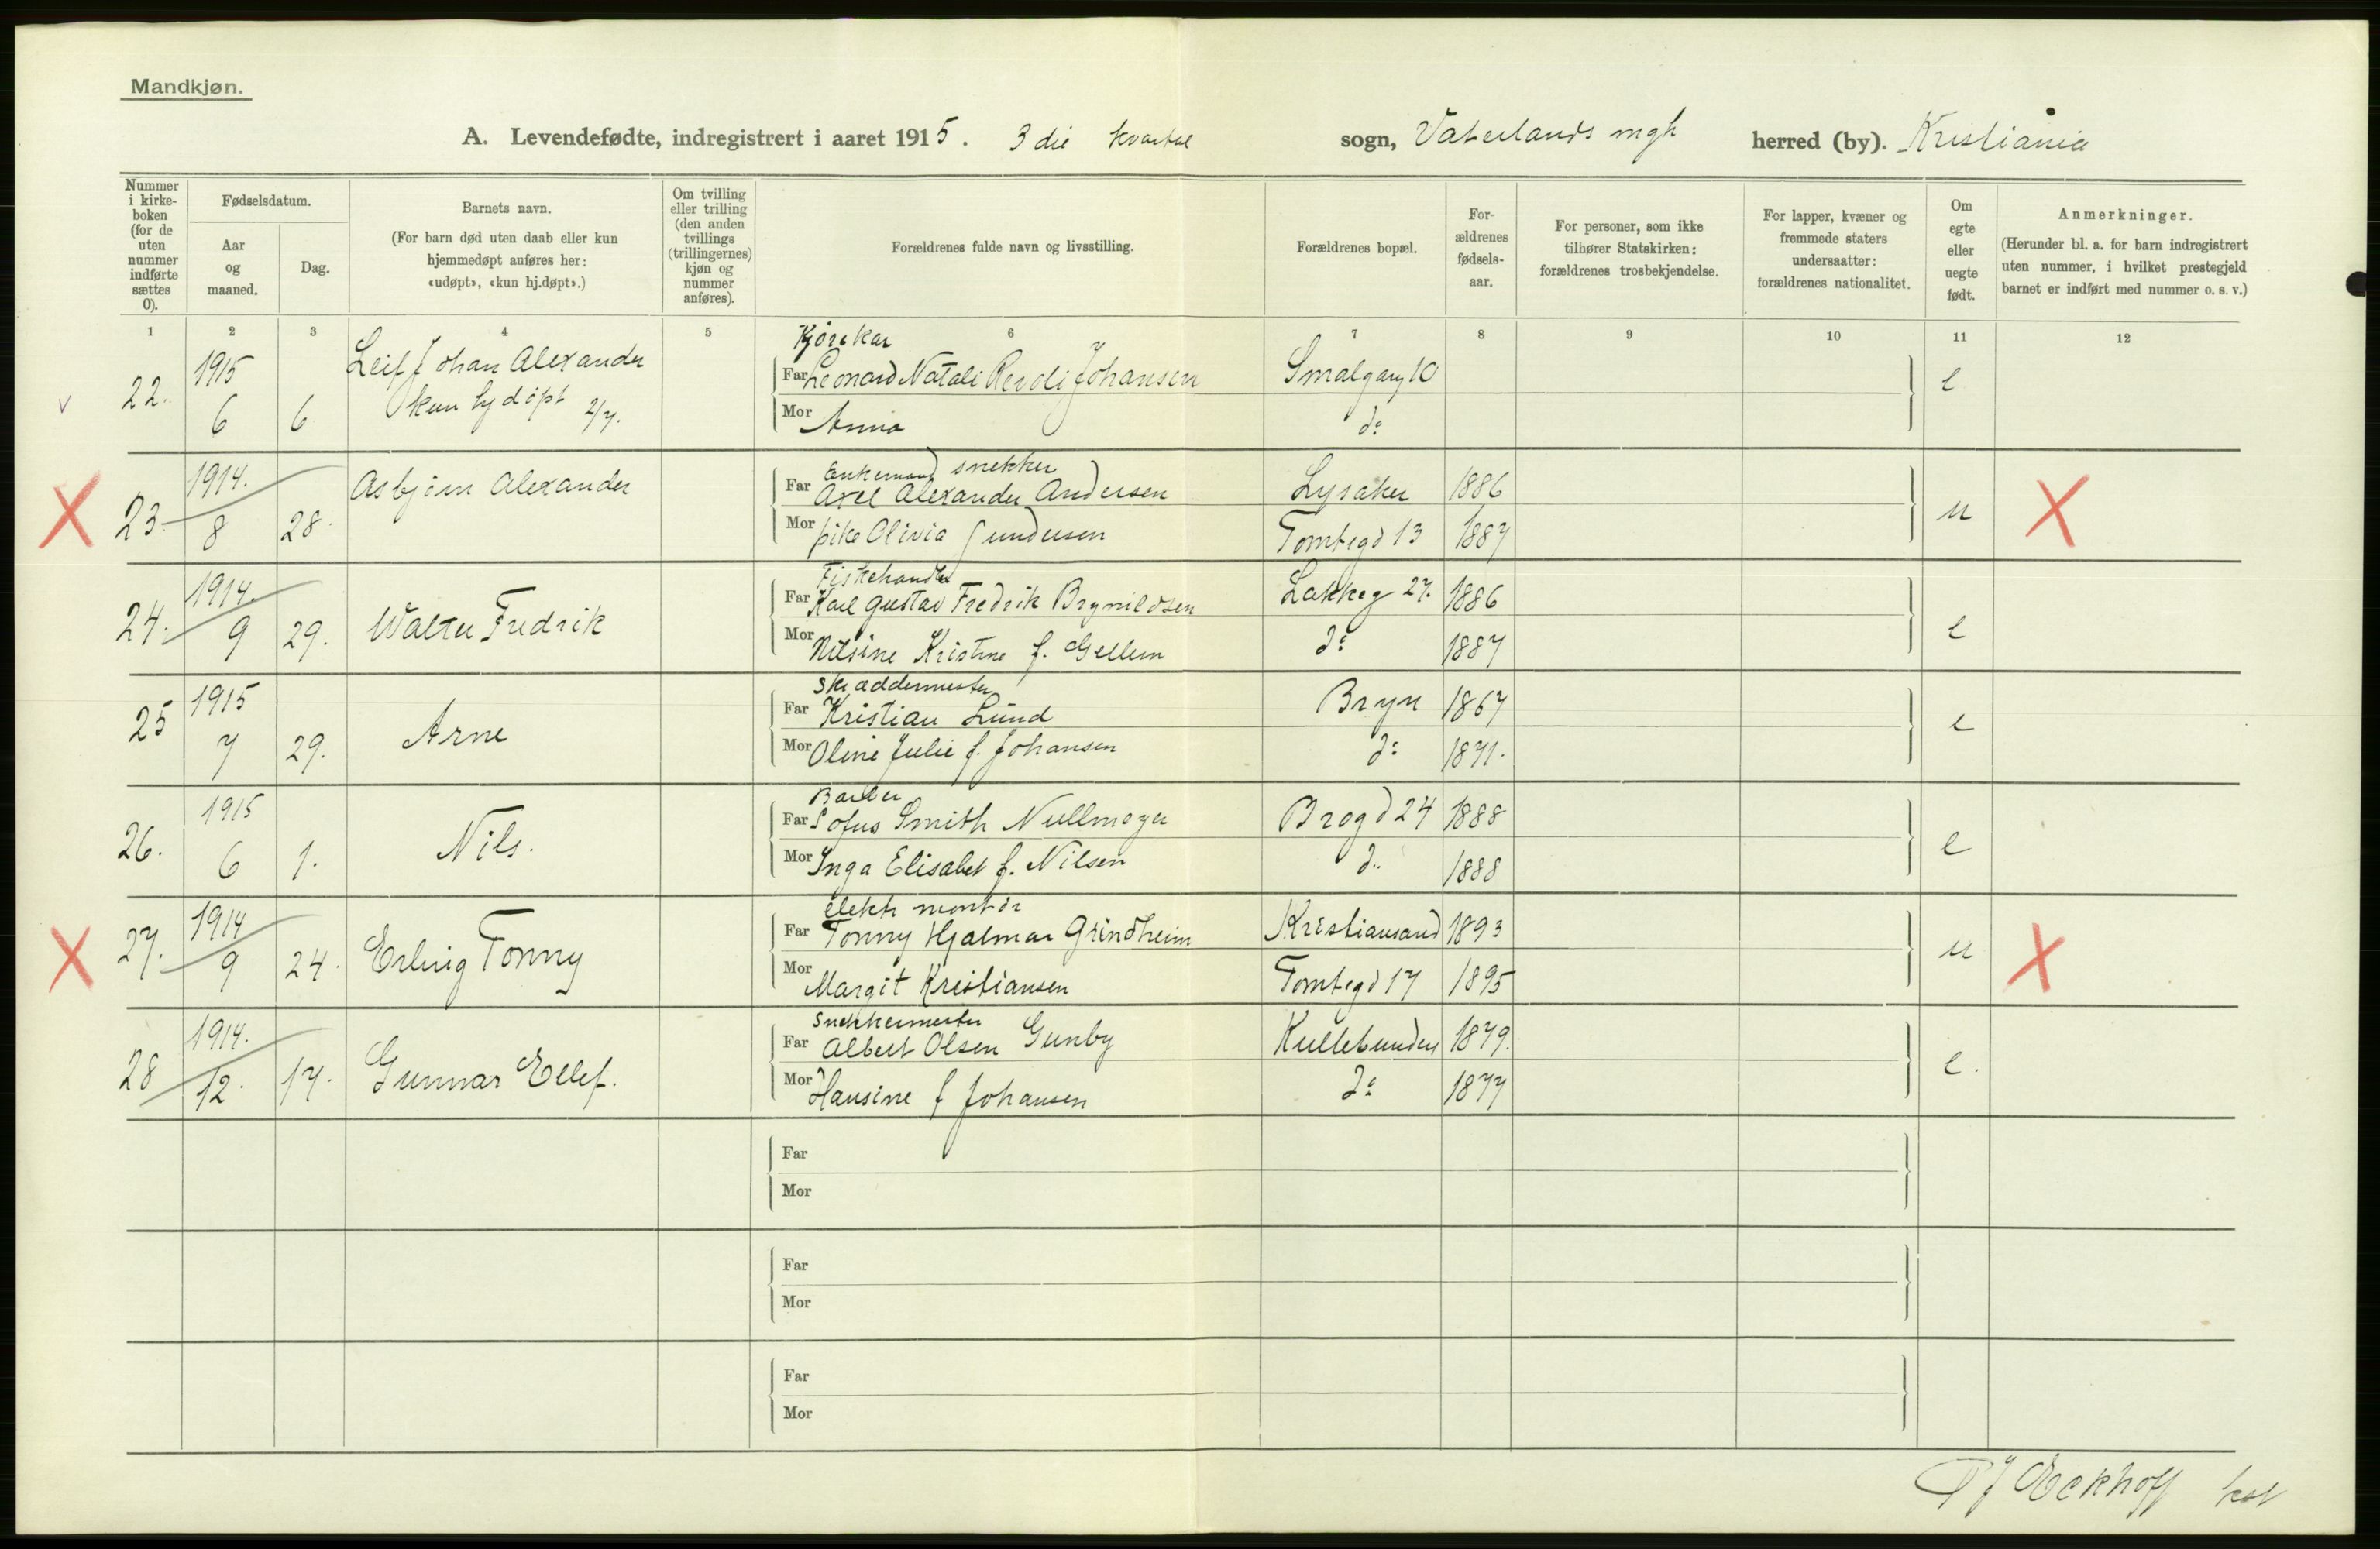 Mandkjøn.
A. Levendefødte, indregistrert i aaret 1915. 3die kvartal sogn, Vaterlands mgh herred (by). Kristiania
Nummer i kirke-boken (for de uten nummer indførte sættes 0).
Fødselsdatum.
Aar og maaned.
Dag.
Barnets navn.
(For barn død uten daab eller kun hjemmedøpt anføres her: «udøpt», «kun hj.døpt».)
Om tvilling eller trilling (den anden tvillings (trillingernes) kjøn og nummer anføres).
Forældrenes fulde navn og livsstilling.
Forældrenes bopæl.
For-ældrenes fødsels-aar.
For personer, som ikke tilhører Statskirken: forældrenes trosbekjendelse.
For lapper, kvæner og fremmede staters undersaatter: forældrenes nationalitet.
Om egte eller uegte født.
Anmerkninger.
(Herunder bl. a. for barn indregistrert uten nummer, i hvilket prestegjeld barnet er indført med nummer o. s. v.)
1 2 3 4 5 6 7 8 9 10 11 12
Kjørekar
22. 1915 6 6 Leif Johan Alexander
kun hjdøpt 2/7.
Far Leonard Natali Johansen Smalgang 10 e
Mor Anna do
Enkemand snekker
23 1914. 8 28. Asbjørn Alexander
Far Axel Alexander Andersen Lysaker 1886 u X
Mor pike Olivia Gundersen Tomtegd 13 1887
Fiskehandler
24. 1914. 9 29. Walter Fredrik
Far Karl Gustav Fredrik Brynildsen Lakkeg 27. 1886 e
Mor Nilsine Kristine f. Gellum do 1887
Skræddermester
25 1915 7 29. Arne
Far Kristian Lund Bryn 1867 e
Mor Oline Julie f. Johansen do 1871.
Barber
26. 1915 6 1. Nils.
Far Sofus Smith Nullmeyer Brogd 24 1888 e
Mor Inga Elisabet f. Nilsen do 1888
elektr montør
27. 1914 9 24. Erling Tonny
Far Tonny Hjalmar Grindheim Kristiansand 1893 u X
Mor Margit Kristiansen Tomtegd 17 1895
Snekkermester
28 1914. 12. 17. Gunnar Ellef.
Far Albert Olsen Gunby Kullebunden 1879. e.
Mor Hansine f Johansen do 1877
Far
Mor
Far
Mor
Far
Mor
Eckhoff